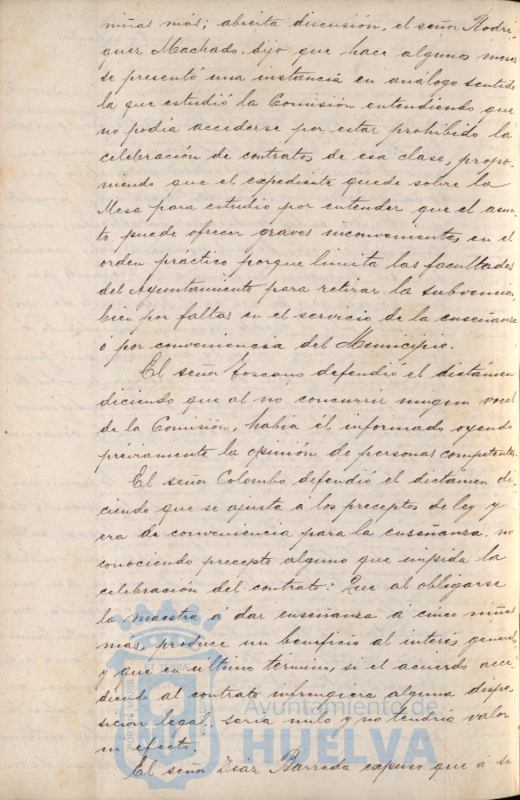 niñas más; abierta discusión, el señor Rodri
guez Machado, dijo que hace algunos meses
se presentó una instancia en análogo sentido
la que estudió la Comisión entendiendo que
no podía accederse por estar prohibido la
celebración de contratos de esa clase, propo-
niendo que el expediente quede sobre la
Mesa para estudio por entender que el asun-
to puede ofrecer graves inconvenientes en el
orden practico porque limita las facultades
del Ayuntamiento para retirar la subvención,
bien por faltas en el servicio de la enseñanza
o por conveniencia del Municipio.
El señor Toscano defendió el dictámen
diciendo que al no concurrir ningun vocal
de la Comisión, habia él informado oyendo
préviamente la opinión de personas competentes.
El señor Colombo defendió el dictámen di-
ciendo que se ajusta a los preceptos de ley y
era de conveniencia para la enseñanza, no
conociendo precepto alguno que impida la
celebración del contrato: Que al obligarse
la maestra á dar enseñanza á cinco niñas
mas, produce un beneficio al interés general,
y que en último término, si el acuerdo acce-
diendo al contrato infringiera alguna dispo-
sición legal, seria nulo y no tendría valor
ni efecto.
El señor Diaz Barreda expuso que á su
Ayuntamiento de
HUELVA